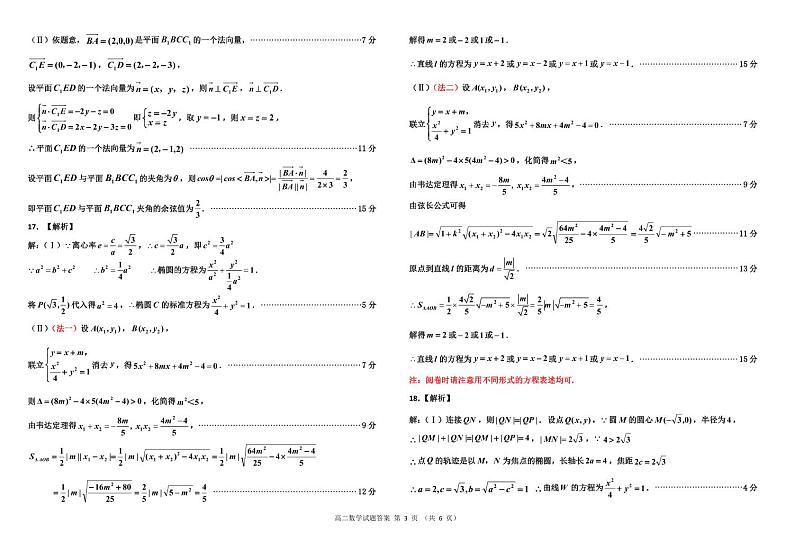 (Ⅱ)依题意，$\overrightarrow{BA}=(2,0,0)$是平面$B_1BCC_1$的一个法向量，……………………………………7分
$\overrightarrow{C_1E}=(0,-2,-1)$，$\overrightarrow{C_1D}=(2,-2,-3)$，
设平面$C_1ED$的一个法向量为$\vec{n}=(x，y，z)$，则$\vec{n}\perp\overrightarrow{C_1E}$，$\vec{n}\perp\overrightarrow{C_1D}$．
则$\begin{cases}\vec{n}\cdot\overrightarrow{C_1E}=-2y-z=0\\ \vec{n}\cdot\overrightarrow{C_1D}=2x-2y-3z=0\end{cases}$即$\begin{cases}z=-2y\\ x=z\end{cases}$，取$y=-1$，则$x=z=2$，
∴平面$C_1ED$的一个法向量为$\vec{n}=(2，-1,2)$ ……………………………………11分
设平面$C_1ED$与平面$B_1BCC_1$的夹角为$\theta$，则$cos\theta=|cos<\overrightarrow{BA},\vec{n}>|=\frac{|\overrightarrow{BA}\cdot\vec{n}|}{|\overrightarrow{BA}||\vec{n}|}=\frac{4}{2\times3}=\frac{2}{3}$，
即平面$C_1ED$与平面$B_1BCC_1$夹角的余弦值为$\frac{2}{3}$．……………………………………15分
17．【解析】
解：(Ⅰ)∵离心率$e=\frac{c}{a}=\frac{\sqrt{3}}{2}$，∴$\frac{c}{a}=\frac{\sqrt{3}}{2}$，即$c^2=\frac{3}{4}a^2$
∵$a^2=b^2+c^2$ ∴$b^2=\frac{1}{4}a^2$ ∴椭圆的方程为$\frac{x^2}{a^2}+\frac{y^2}{\frac{1}{4}a^2}=1$．
将$P(\sqrt{3},\frac{1}{2})$代入得$a^2=4$，∴椭圆$C$的标准方程为$\frac{x^2}{4}+y^2=1$．……………………………………5分
(Ⅱ)(法一)设$A(x_1,y_1)$，$B(x_2,y_2)$，
联立$\begin{cases}y=x+m，\\ \frac{x^2}{4}+y^2=1\end{cases}$消去$y$，得$5x^2+8mx+4m^2-4=0$．……………………………………7分
则$\Delta=(8m)^2-4\times5(4m^2-4)>0$，化简得$m^2<5$，
由韦达定理得$x_1+x_2=-\frac{8m}{5}$，$x_1x_2=\frac{4m^2-4}{5}$，……………………………………9分
$S_{\Delta AOB}=\frac{1}{2}|m||x_1-x_2|=\frac{1}{2}|m|\sqrt{(x_1+x_2)^2-4x_1x_2}=\frac{1}{2}|m|\sqrt{\frac{64m^2}{25}-4\times\frac{4m^2-4}{5}}$
$=\frac{1}{2}|m|\sqrt{\frac{-16m^2+80}{25}}=\frac{2}{5}|m|\sqrt{5-m^2}=\frac{4}{5}$ ……………………………………12分
解得$m=2$或$-2$或$1$或$-1$．
∴直线$l$的方程为$y=x+2$或$y=x-2$或$y=x+1$或$y=x-1$．……………………………………15分
(Ⅱ)(法二)设$A(x_1,y_1)$，$B(x_2,y_2)$，
联立$\begin{cases}y=x+m，\\ \frac{x^2}{4}+y^2=1\end{cases}$消去$y$，得$5x^2+8mx+4m^2-4=0$．……………………………………7分
$\Delta=(8m)^2-4\times5(4m^2-4)>0$，化简得$m^2<5$，
由韦达定理得$x_1+x_2=-\frac{8m}{5}$，$x_1x_2=\frac{4m^2-4}{5}$，……………………………………9分
由弦长公式可得
$|AB|=\sqrt{1+k^2}\sqrt{(x_1+x_2)^2-4x_1x_2}=\sqrt{2}\sqrt{\frac{64m^2}{25}-4\times\frac{4m^2-4}{5}}=\frac{4\sqrt{2}}{5}\sqrt{-m^2+5}$ ……………………11分
原点到直线$l$的距离为$d=\frac{|m|}{\sqrt{2}}$．……………………………………13分
∴$S_{\Delta AOB}=\frac{1}{2}\times\frac{4\sqrt{2}}{5}\sqrt{-m^2+5}\times\frac{|m|}{\sqrt{2}}=\frac{2}{5}|m|\sqrt{-m^2+5}=\frac{4}{5}$，
解得$m=2$或$-2$或$1$或$-1$．
∴直线$l$的方程为$y=x+2$或$y=x-2$或$y=x+1$或$y=x-1$．……………………………………15分
注：阅卷时请注意用不同形式的方程表达均可．
18．【解析】
解：(Ⅰ)连接$QN$，则$|QN|=|QP|$．设点$Q(x,y)$，∵圆$M$的圆心$M(-\sqrt{3},0)$，半径为$4$，
∴$|QM|+|QN|=|QM|+|QP|=4$，$|MN|=2\sqrt{3}$，∵$4>2\sqrt{3}$
∴点$Q$的轨迹是以$M，N$为焦点的椭圆，长轴长$2a=4$，焦距$2c=2\sqrt{3}$
∴$a=2,c=\sqrt{3},b=\sqrt{a^2-c^2}=1$ ∴曲线$W$的方程为$\frac{x^2}{4}+y^2=1$．……………………………………4分
高二数学试题答案 第 3 页 （共 6 页）